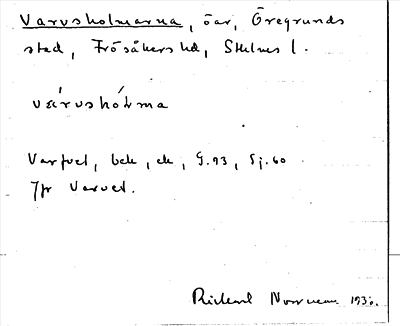 Varvsholmarna, öar, Öregrunds
stad, Frösåkers hd, Sthlms l.
Varfvet, bek, ek, G. 93, Sj. 60
Jfr Varvet.
Rickard Norrman 193